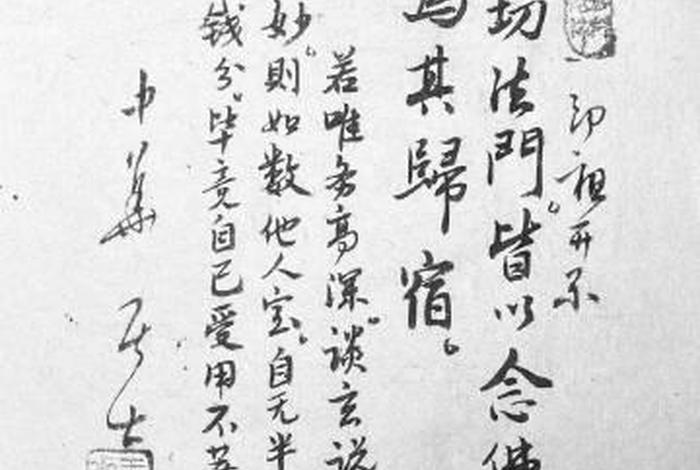 印祖开示
切法門。皆以念佛
為其歸宿。
若唯务高深。谈玄说
妙。则如数他人宝。自无半
钱分。毕竟自己受用不
中华居士